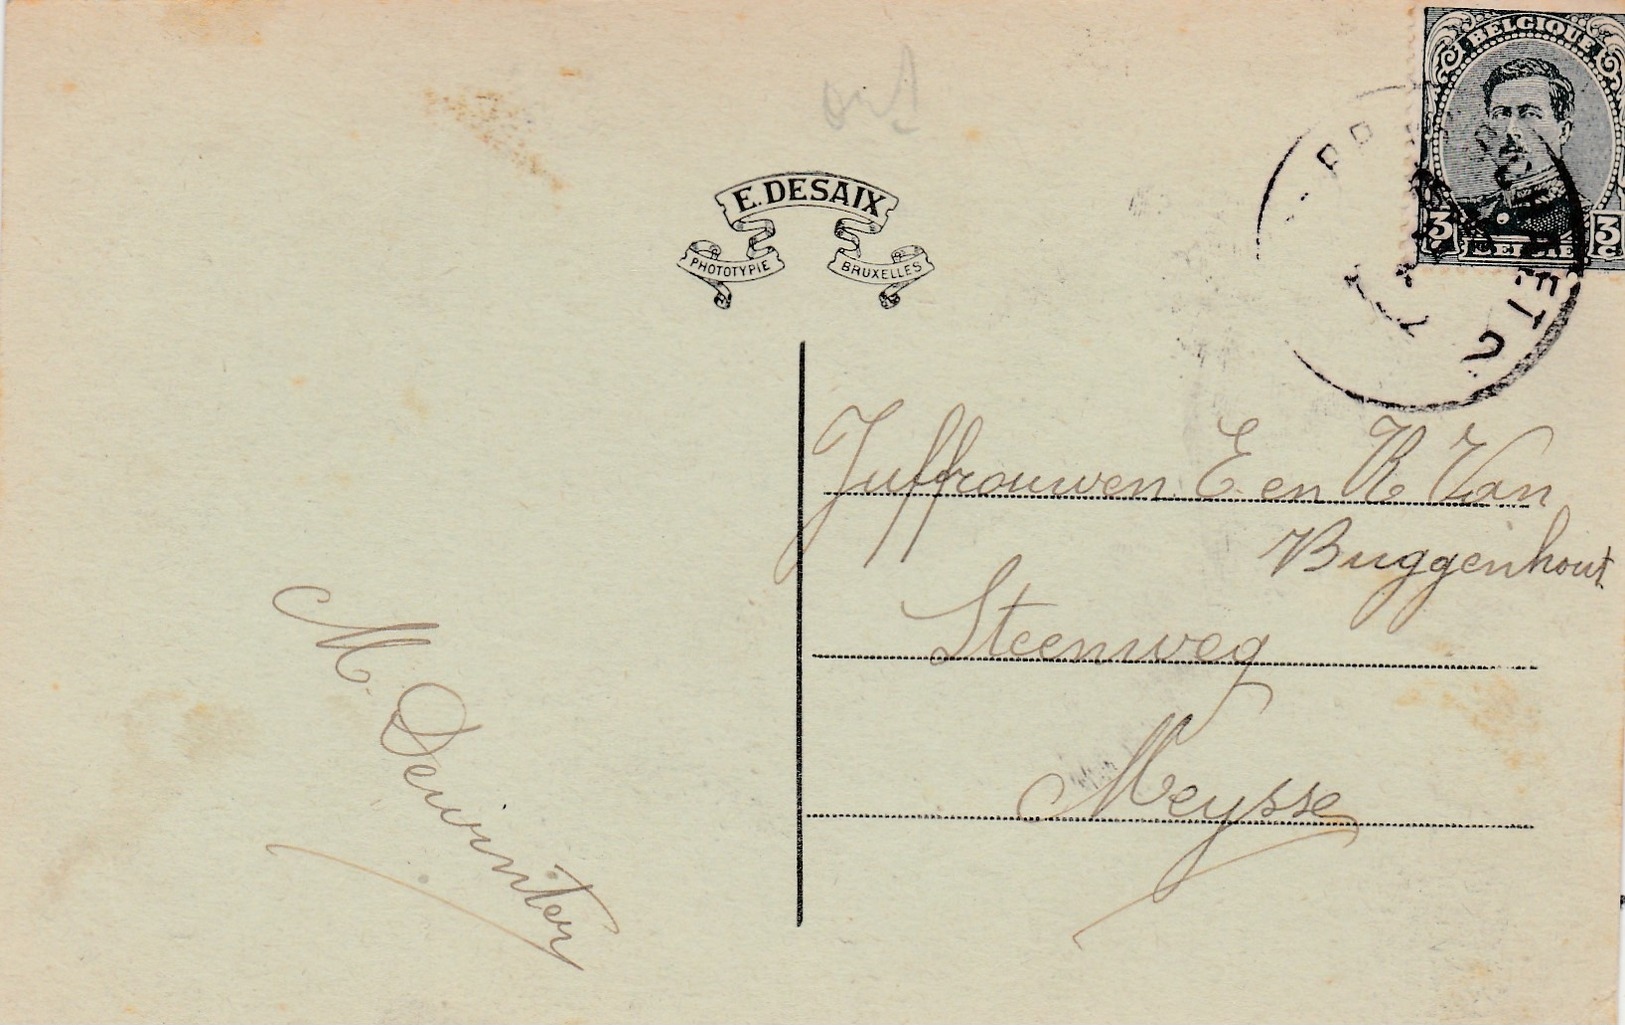 BELGIQUE
3 3
c BELGIË c
E. DESAIX
PHOTOTYPIE BRUXELLES
Juffrouwen E. en R Van
Buggenhout
Steenweg
Meysse
M. Dewinter